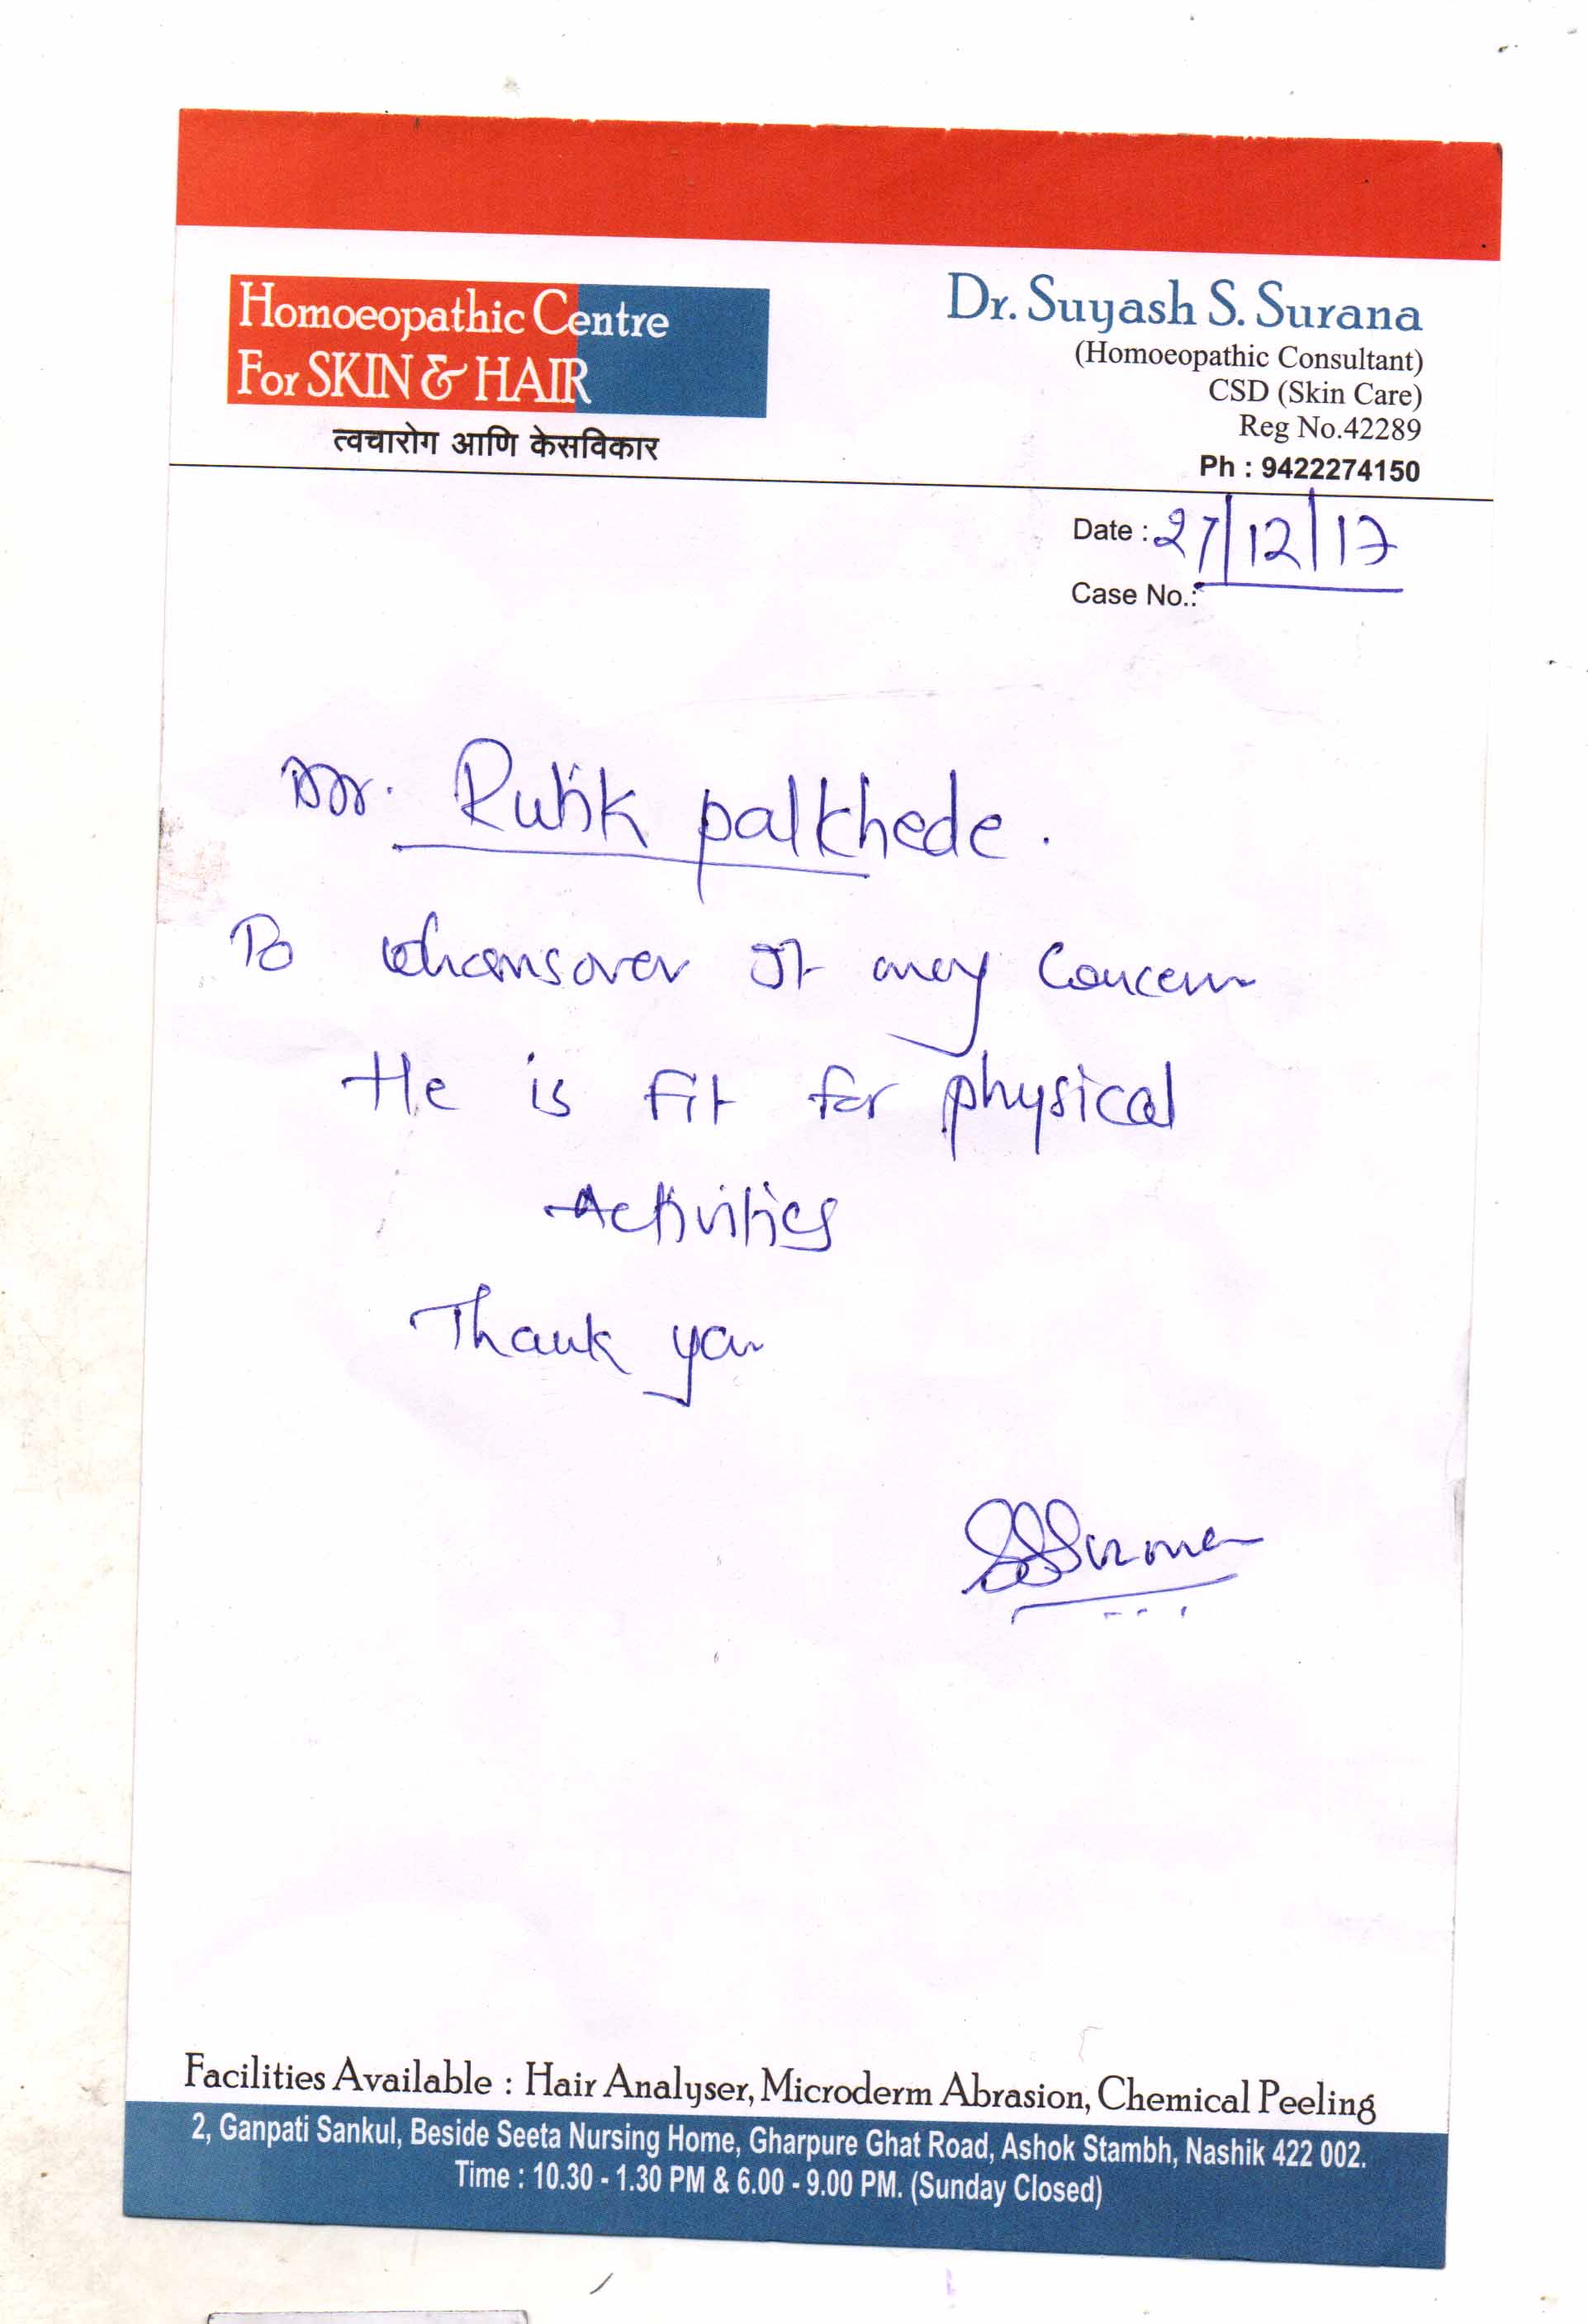 Homoeopathic Centre
For SKIN & HAIR
त्वचारोग आणि केसविकार
Dr. Suyash S. Surana
(Homoeopathic Consultant)
CSD (Skin Care)
Reg No.42289
Ph : 9422274150
Date : 27/12/17
Case No.:
Mr. Rutik palkhede.
To whomsover It may Concern
He is fit for physical
Activities
Thank you
SSSurana
Facilities Available : Hair Analyser, Microderm Abrasion, Chemical Peeling
2, Ganpati Sankul, Beside Seeta Nursing Home, Gharpure Ghat Road, Ashok Stambh, Nashik 422 002.
Time : 10.30 - 1.30 PM & 6.00 - 9.00 PM. (Sunday Closed)